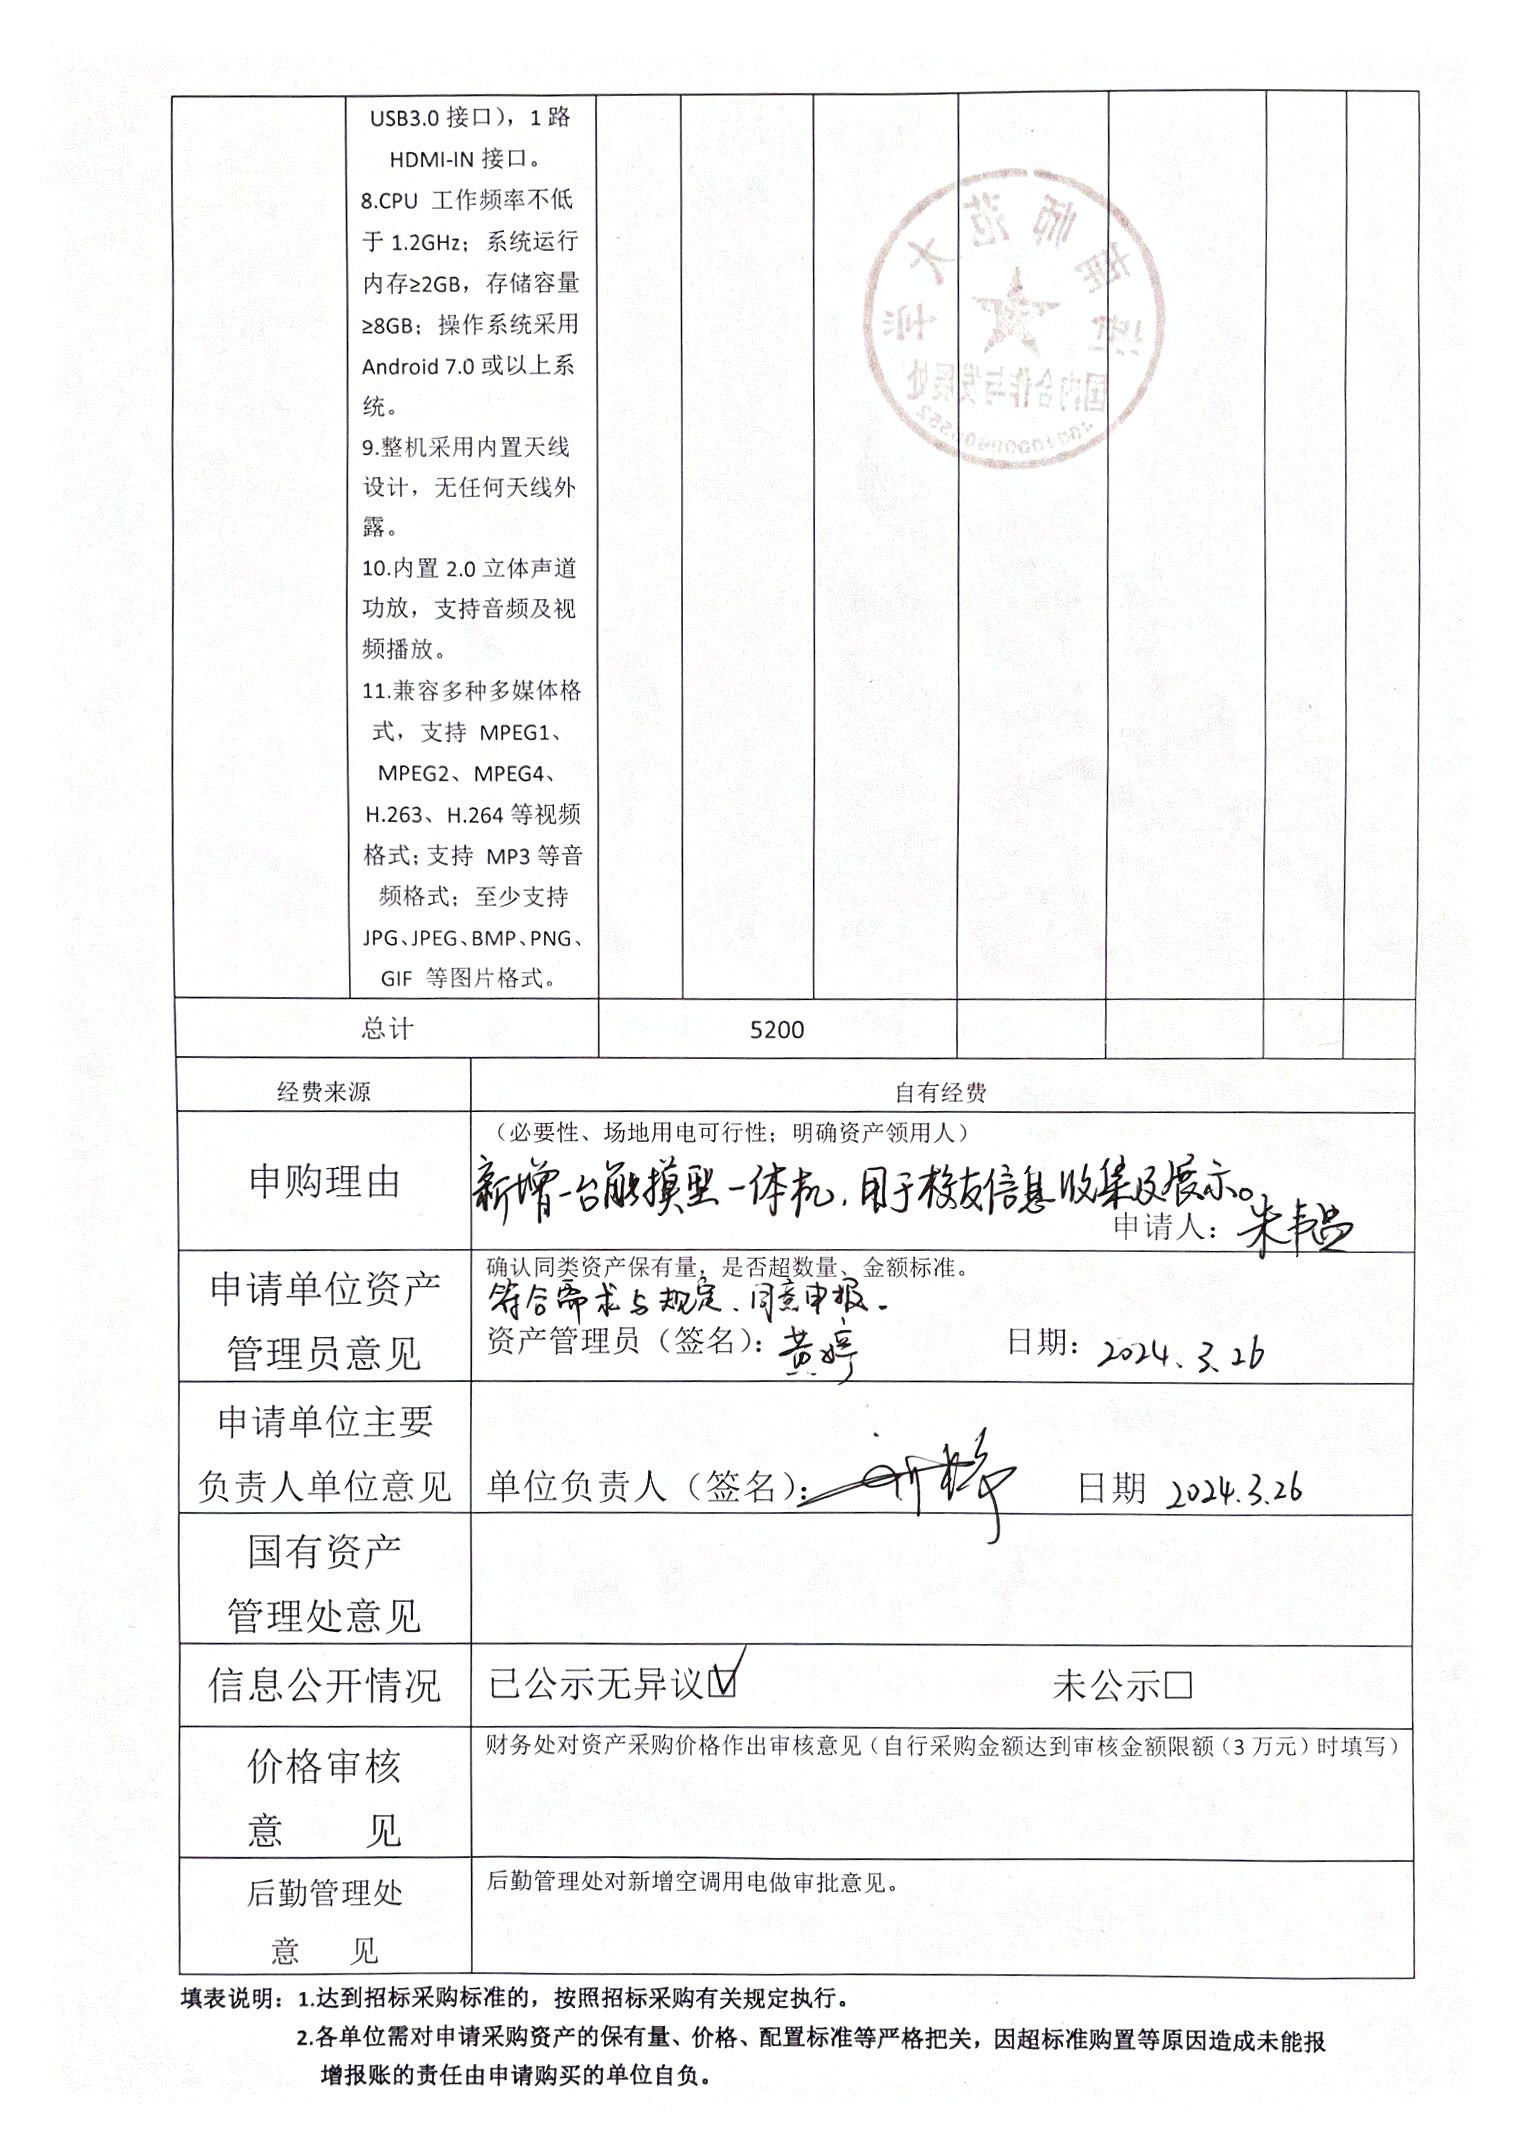 USB3.0 接口），1 路
HDMI-IN 接口。
8.CPU 工作频率不低
于 1.2GHz；系统运行
内存≥2GB，存储容量
≥8GB；操作系统采用
Android 7.0 或以上系
统。
9.整机采用内置天线
设计，无任何天线外
露。
10.内置 2.0 立体声道
功放，支持音频及视
频播放。
11.兼容多种多媒体格
式，支持 MPEG1、
MPEG2、MPEG4、
H.263、H.264 等视频
格式；支持 MP3 等音
频格式；至少支持
JPG、JPEG、BMP、PNG、
GIF 等图片格式。
师范大
国内合作与发展处
总计 5200
经费来源 自有经费
申购理由
（必要性、场地用电可行性；明确资产领用人）
新增一台触摸型一体机，用于校友信息收集及展示。
申请人：
申请单位资产
管理员意见
确认同类资产保有量，是否超数量、金额标准。
符合需求与规定、同意申报。
资产管理员（签名）：黄婷 日期：2024.3.26
申请单位主要
负责人单位意见
单位负责人（签名）： 日期 2024.3.26
国有资产
管理处意见
信息公开情况 已公示无异议☑ 未公示□
价格审核
意 见
财务处对资产采购价格作出审核意见（自行采购金额达到审核金额限额（3 万元）时填写）
后勤管理处
意 见
后勤管理处对新增空调用电做审批意见。
填表说明：1.达到招标采购标准的，按照招标采购有关规定执行。
2.各单位需对申请采购资产的保有量、价格、配置标准等严格把关，因超标准购置等原因造成未能报
增报账的责任由申请购买的单位自负。